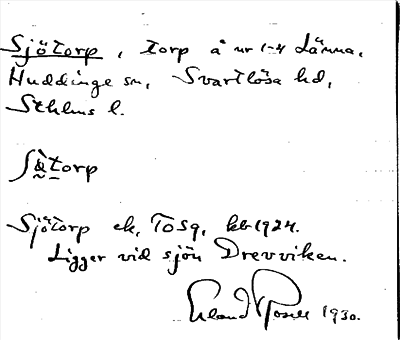 Sjötorp, torp å nr 1-4 Länna,
Huddinge sn, Svartlösa hd,
Sthlms l.
torp
Sjötorp ek, kb 1924.
Ligger vid sjön Drevviken.
Erland Rosell 1930.